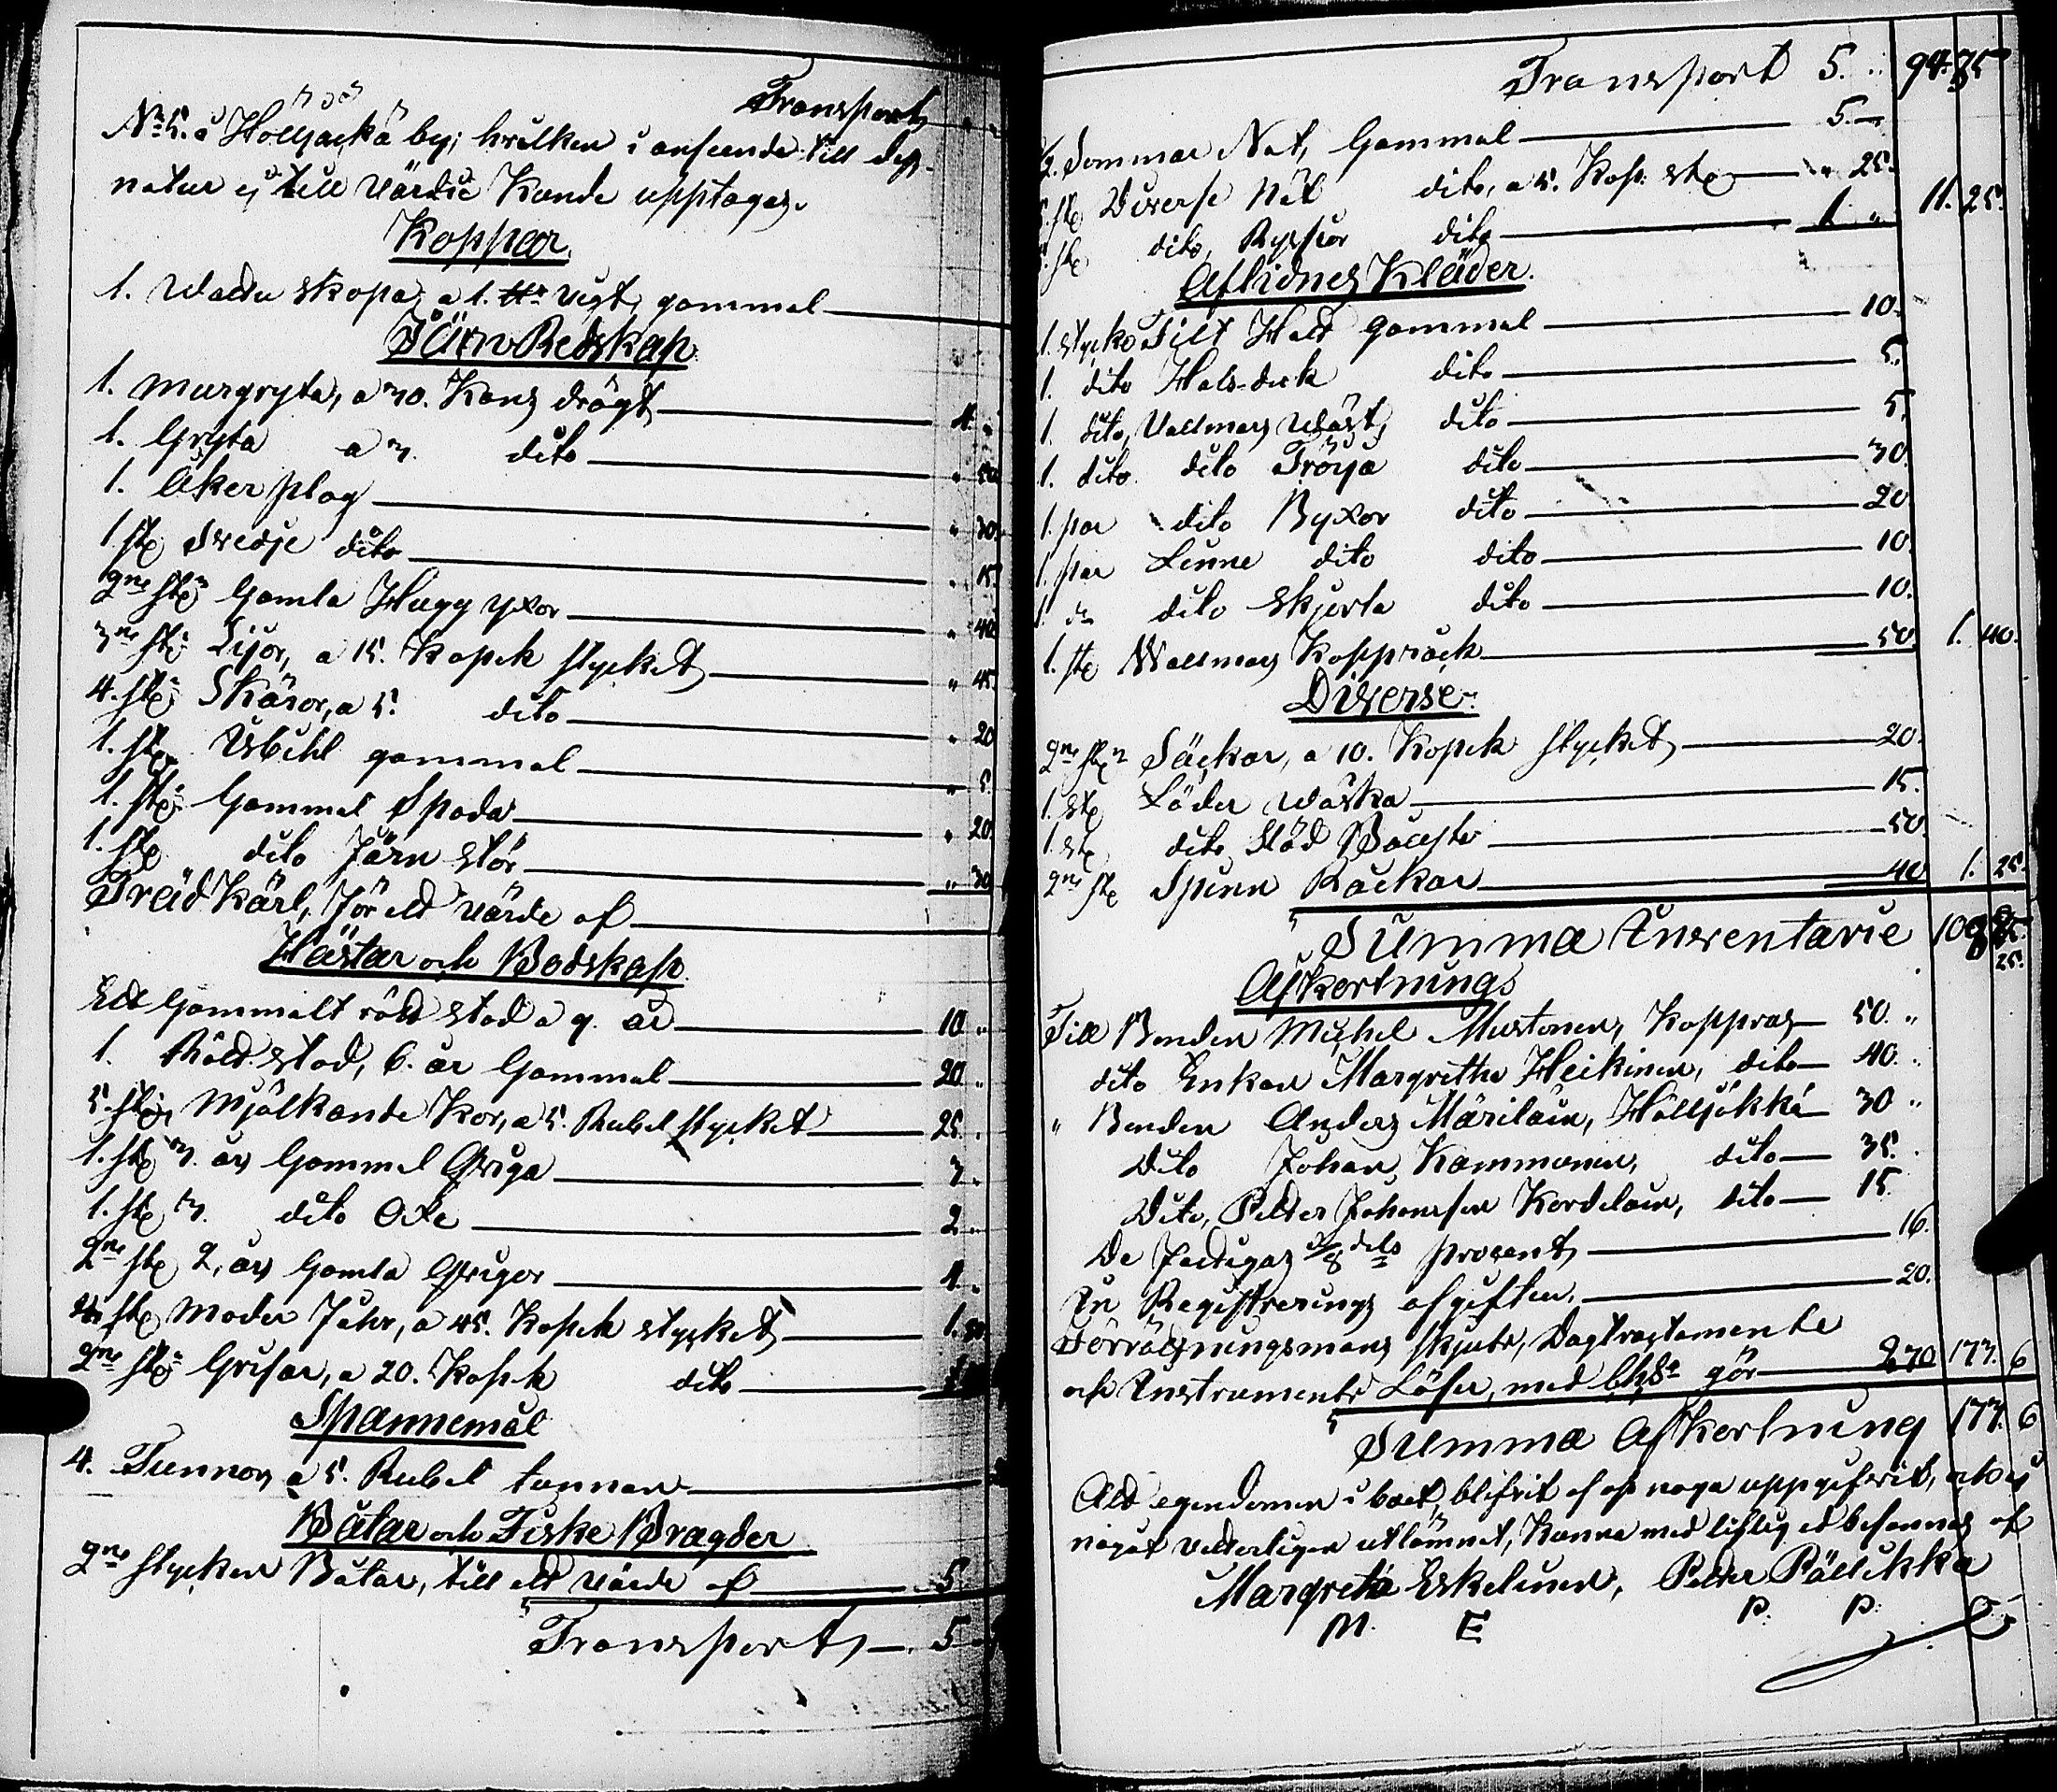 Transport
No 5. i Holljäckä by; hvilken i anseende till dess
natur ej till värdie Kunde upptagas.
Koppar.
1. Wattu skopa, a 1. vigt, gammal
Järn Redskap
1. murgryta, a 30. Kans drägt 4. "
1. Gryta a 3. dito " 50.
1. Åker plog " 30.
1. st. Svedje dito " 15.
2ne st. Gamla Hugg yxor " 40.
3ne st. Lijor, a 15. Kopek stycket " 45.
4. st. Skäror, a 5. dito " 20
1. st. Vbihl gammal " 5.
1. st. Gammal Spada " 20.
1. st. dito Järn stör " 30
Träd Kärl, för ett värde af
Hästar och Bodskap.
Ett Gammalt rödt stod a 9. år 10 "
1. Rödt stod, 6. år Gammal 20 "
5. st. Mjölkande Kor, a 5. Rubel stycket 25. "
1. st. 3. års Gammal Qviga 3. "
1. st. 3. dito Oxe 2 "
2ne st. 2, års Gamla Qvigor 4. "
st. moder Fåhr, a 45. Kopek stycket 1. 80.
2ne st. Grisar, a 20. Kopek dito
Spannemål
4. Tunnor, a 5. Rubel tunnan
Båtar och Fiske Bragder
2ne stycken Båtar, till ett värde af 5
Transport 5
Transport 5. " 94. 85
Sommar Not, Gammal 5. "
st. Diverse Nät dito, a 5. Kop. st. " 25.
st. dito, Ryssior dito 1 " 11. 25.
Aflidnes Kläder.
1. stycke Filt Hatt gammal 10.
1. dito Hals-duk dito 5.
1. dito, Vallmars Wäst, dito 5.
1. dito dito Tröija dito 30.
1. par dito Byxor dito 20
1. par Linne dito dito 10.
1. dito Skjorta dito 10.
1. st. Wallmars Kapprock 50. 1. 40.
Diverse.
2ne st. Säckar, a 10. Kopek stycket 20.
1. st. Läder Wäska 15.
1. st. dito Stöd 50.
2ne st. Spinn Råckar 40 1. 25.
Summa Inventarie
Afkortnings
Till Bonden Michel Mustonen, Koppras 50. "
dito Enkan Margretha Heikinen, dito 40. "
" Bonden Anders Märiläin, Holljökkä 30 "
Dito Johan Kammonen, dito 35. "
Dito, Petter Johansson Kordelain, dito 15.
De Fattigas 1/8 dels procent 16.
In Registrerings afgiften. 20.
Förrättningsmans skjuts, Dagtractamente
och Instruments Lösen, med gör 2 70 173. 6
Summa Afkortning 173. 6
Att egendomen i boet, blifvit af oss noga uppgifvit, och ej
något vetterligen utlämnat, Kunna med liflig ed besannas af
Margreta Eskelinen, Petter Pällikkä
M. E P. P.